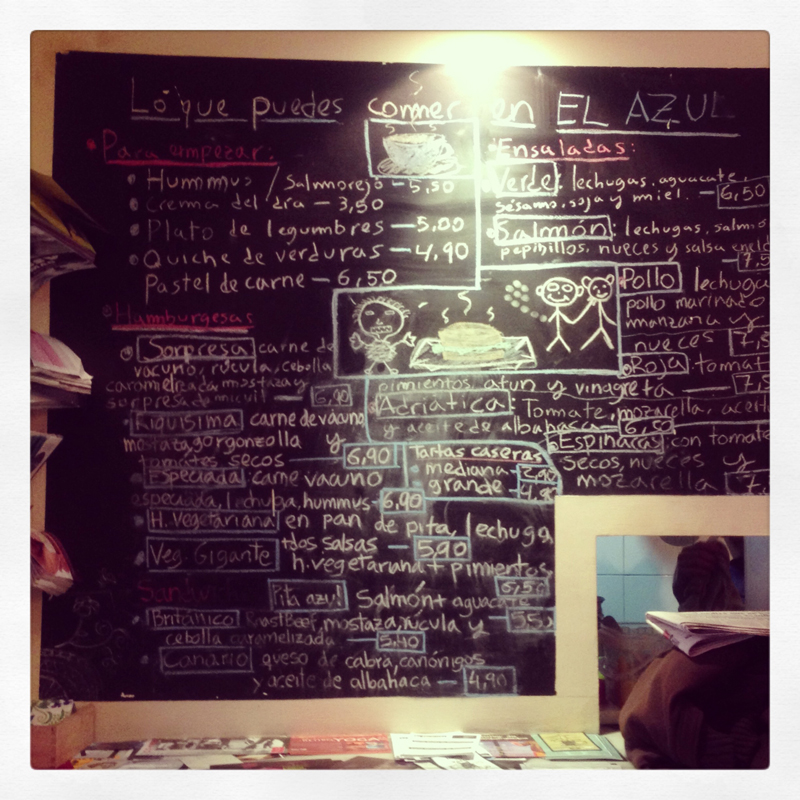 Lo que puedes comer en EL AZUL
Para empezar:
Hummus / Salmorejo - 5,50
Crema del día - 3,50
Plato de legumbres - 5,00
Quiche de verduras - 4,90
Pastel de carne - 6,50
Humburgesas
Sorpresa carne de
vacuno, rúcula, cebolla
caramelizada, mostaza y
sorpresa 6,90
Riquísima carne de vacuno
mostaza, gorgonzolla y
tomates secos - 6,90
Especiada carne vacuno
especiada, lechuga, hummus - 6,90
H. Vegetariana en pan de pita, lechuga,
tdos salsas - 5,90
Veg. Gigante h. vegetariana + pimientos
6,50
Pita azul Salmón + aguacate
Británico RoastBeef, mostaza, rúcula y
cebolla caramelizada - 5,40
Canario queso de cabra, canónigos
y aceite de albahaca - 4,90
Ensaladas:
Verde: lechugas, aguacate,
sésamo, soja y miel. - 6,50
Salmón: lechugas, salmó
pepinillos, nueces y salsa eneld
7,5
Pollo lechuga
pollo marinado
manzana y
nueces 7,5
Roja tomat
pimientos, atun y vinagreta - 7,5
Adriática Tomate, mozarella, aceit
y aceite de albahaca - 6,50
Espinacas con tomate
secos, nueces y
mozarella 7,5
Tartas caseras
mediana
grande